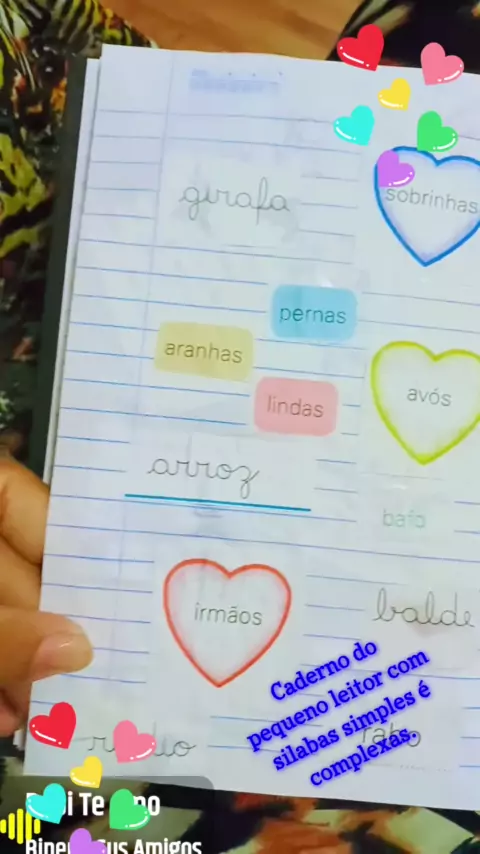 girafa
sobrinhas
pernas
aranhas
lindas
avós
arroz
bafo
irmãos
balde
Caderno do
pequeno leitor com
silabas simples é
complexas.